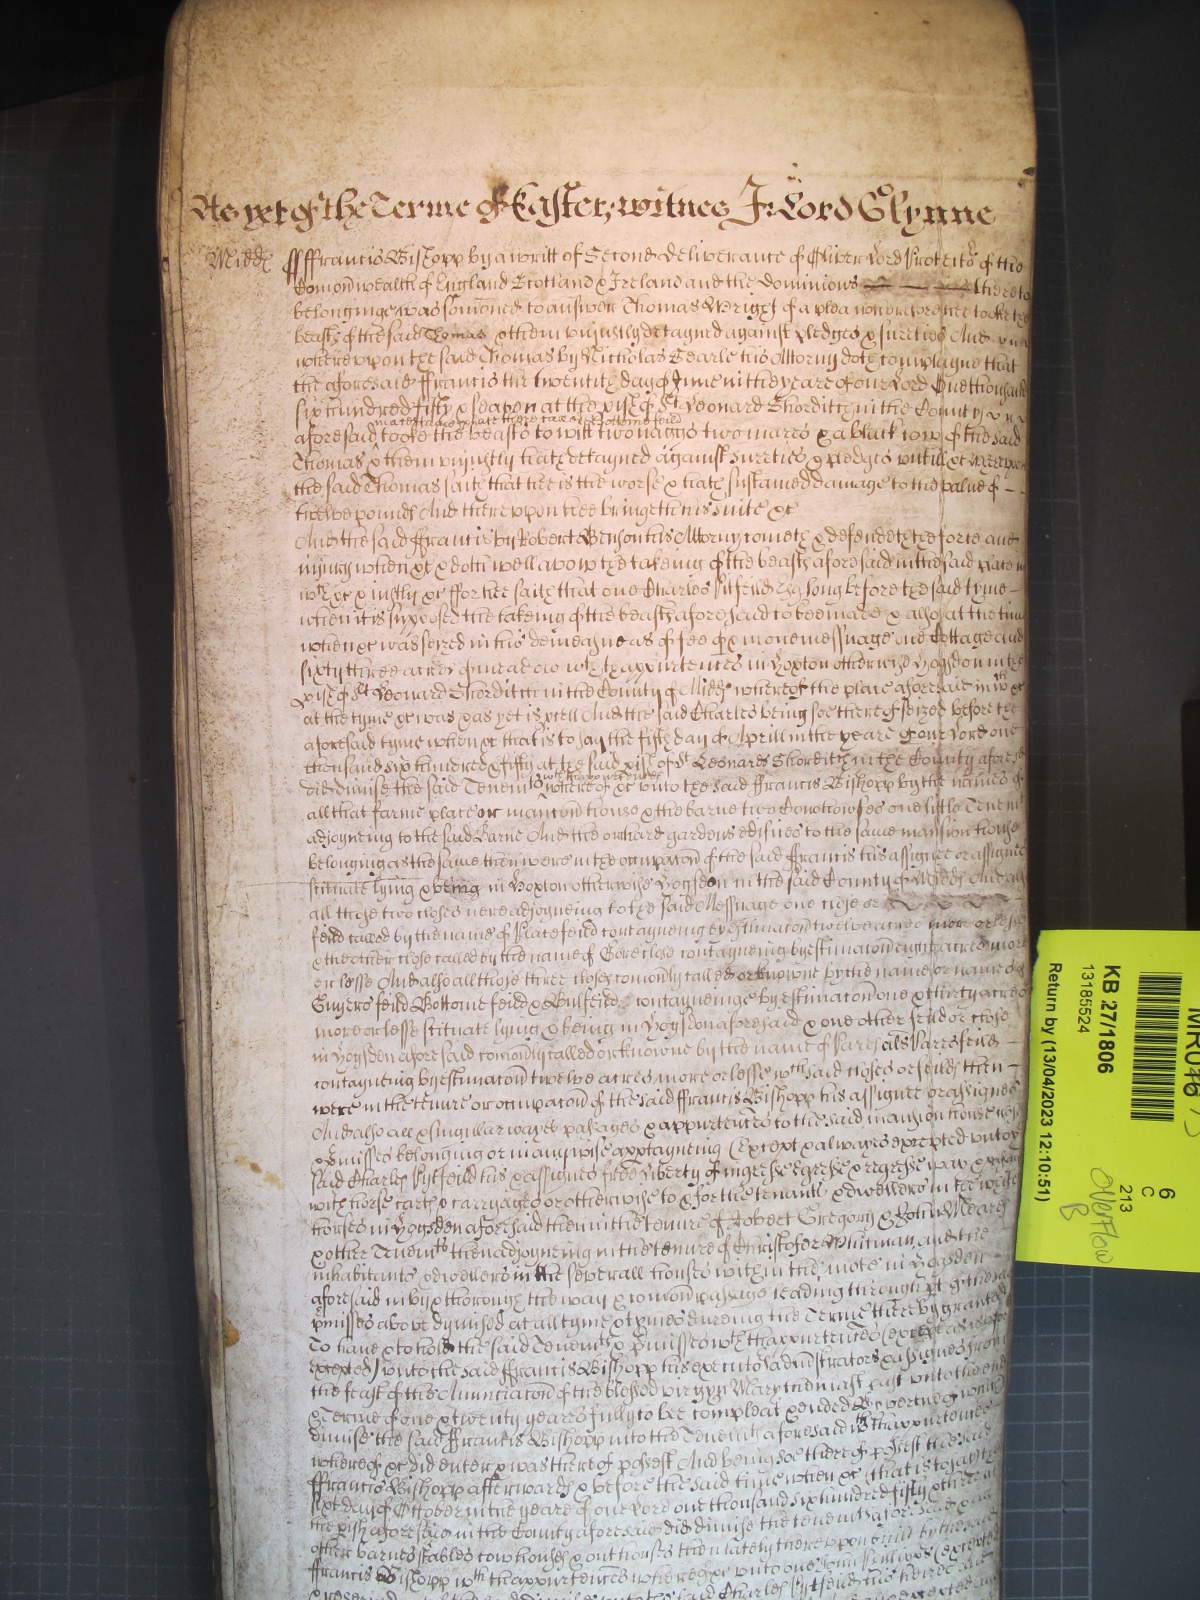 As yet of the Terme of Easter, witnes Jo: Lord Glynne
Midds ffrancis Bishopp by a writt of Second deliverance of Oliver Lord Protector of the
Comonwealth of England Scotland & Ireland and the Dominions thereto
belonginge was somoned to answer Thomas Wright of a plea wherefore hee tooke the
beasts of the said Thomas & them uniustly detayned against pledges & sureties And
whereupon the said Thomas by Nicholas Searle his Attorny doth complayne that
the aforesaid ffrancis the twentith day of June in the yeare of our Lord One thousand
six hundred fifty & seaven at the pish of St Leonard Shorditch in the County
in a certaine place there called Bottome feild
aforesaid tooke the beasts to witt two naggs two mares & a black cow of the said
Thomas & them uniustly hath detayned against sureties & pledges untill &c whereupon
the said Thomas saith that hee is the worse & hath sustained damage to the value of
twelve pounds And thereupon hee bringeth his suite &c
And the said ffrancis by Robert Benson his Attorny cometh & defendeth the force and
iniury when &c & doth well avow the takeing of the beasts aforesaid in the said place in
wch &c & iustly &c ffor hee saith that one Charles Pitfeild Esq long before the said tyme
when it is supposed the takeing of the beasts aforesaid to bee made & also at the time
when &c was seized in his demeasne as of fee of & in one messuage one Cottage and
sixty three acres of meadow wth thappurtences in Hoxton otherwise Hogsdon in the
pish of St Leonard Shorditch in the County of Midds whereof the place aforesaid in wch &c
at the tyme &c was & as yet is pcell And the said Charles being soe thereof seized before the
aforesaid tyme when &c that is to say the fifth day of Aprill in the yeare of our Lord one
thousand six hundred & fifty at the said pish of St Leonards Shorditch in the County aforesd
wth thappurtences
did dimise the said Tenemts whereof &c unto the said ffrancis Bishopp by the names of
all that farme place or mancon house & the barne two Cowhowses one little Tenemt
adjoyneing to the said Barne And the orchard gardens edifices to the same mansion house
belonging as the same then were in the occupacon of the said ffrancis his assignee or assignes
scituate lying & being in Hoxton otherwise Hogsdon in the said County of Midds And
all those two closes nere adjoyneing to the said Messuage one close or
feild called by the name of Platefeild contayneing by estimacon twelve acres more or lesse
& the other close called by the name of Goreclose contayneing by estimacon eight acres more
or lesse And also all those three closes comonly called or knowne by the name or names of
Guyers feild Bottome feild & Bulfeild contayneinge by estimacon one & thirty acres
more or lesse scituate lying & being in Hogsdon aforesaid & one other feild or close
in Hogsden aforesaid comonly called or knowne by the name of als feild
contayneing by estimacon twelve acres more or lesse wch said closes or feilds then
were in the tenure or occupacon of the said ffrancis Bishopp his assignee or assignes
And also all & singular wayes passages & appurtences to the said mansion house
& pmisses belonging or in any wise apptayneing (Except & alwayes excepted unto the
said Charles Pytfeild his & assignes free liberty of ingresse egresse & regresse way &
with horse carts & carryages or otherwise to & for the tenants & dwellers in the
houses in Hogsden aforesaid then in the tenure of Robert Gregory & John Meares
& other Tenemts then adjoyneing in the tenure of Christofer Whitman and the
inhabitants & dwellers in the severall houses within the mote in Hogsden
aforesaid in by & thorough the way & comon passage leading through pt of the said
pmisses above dymised at all tyme & tymes dureing the Terme thereby granted
To have & to hold the said Tenemts & pmisses wth thappurtences (except as is before
excepted) unto the said ffrancis Bishopp his executors administrators & assignes from
the feast of the Anunciacon of the blessed virgyn Mary then last past unto the end
& Terme of one & twenty yeares fully to bee compleat & ended By vertue of which
dimise the said ffrancis Bishopp into the Tenemts aforesaid wth thappurtences
whereof &c did enter & was thereof possest And being soe thereof possest the said
ffrancis Bishopp afterwards & before the said time when &c (that is to say) the
sixt day of October in the yeare of our Lord one thousand six hundred fifty & three at
the pish aforesaid in the County aforesaid did dimise the tenemts aforesaid
other barnes stables cowhouses & outhouses then lately thereupon built by the said
ffrancis Bishopp wth thappurtences whereof &c unto one John (excepted
said Charles Pytfeild his heires
MR046
KB 27/1806
13185524
Return by (13/04/2023 12:10:51)
6
C
213
overflow
B